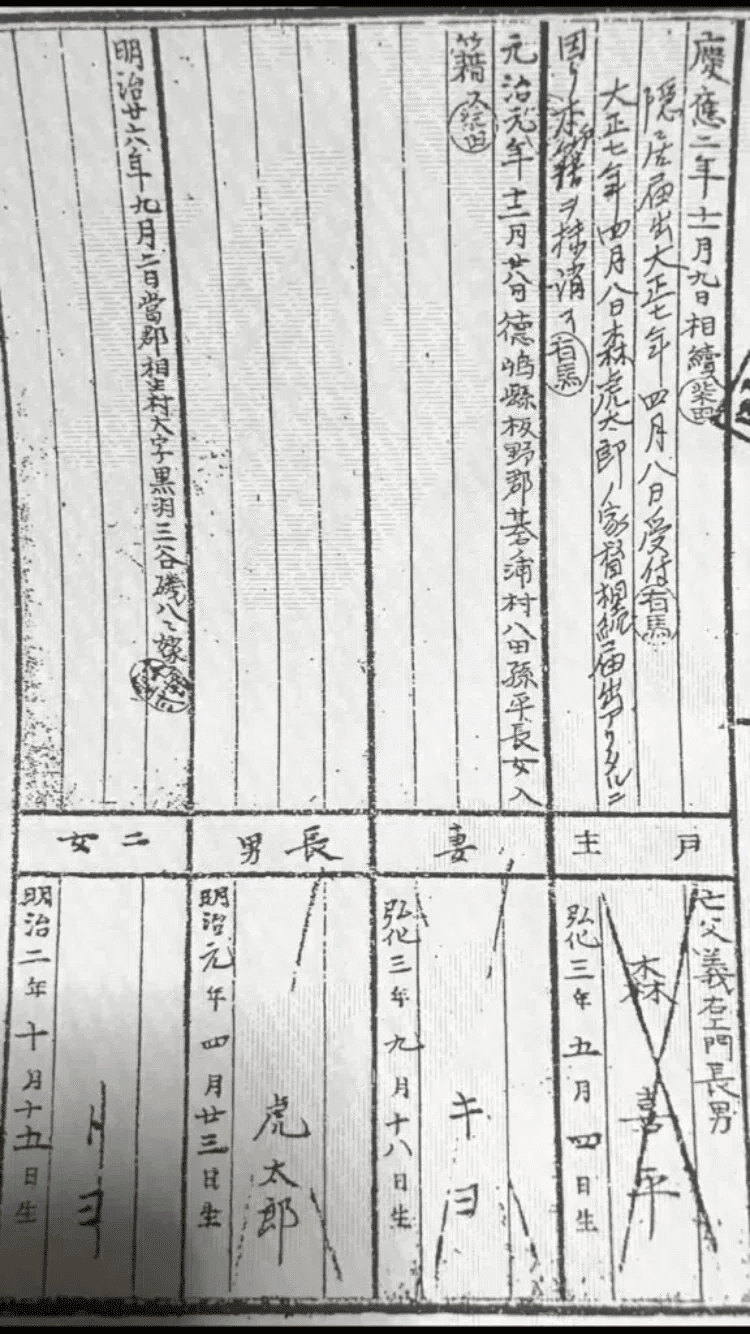 慶應二年十一月九日相續
柴田
隱居届出大正七年四月八日受付
有馬
大正七年四月八日森虎太郎ノ家督相続届出アリタルニ
因リ本戸籍ヲ抹消ス
有馬
元治元年十二月廿八日德嶋縣板野郡基浦村八田孫平長女入
籍ス
柴田
明治廿六年九月二日當郡相生村大字黒羽三谷磯八ヘ嫁
戸主
亡父義右エ門長男
森喜平
弘化三年五月四日生
妻
キヨ
弘化三年九月十八日生
長男
虎太郎
明治元年四月廿三日生
二女
明治二年十月十五日生